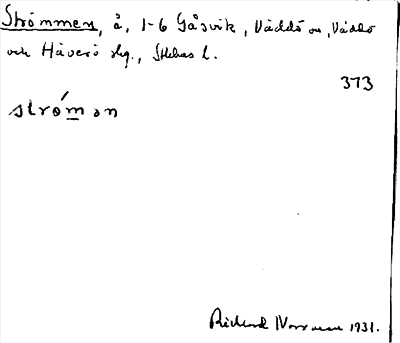 Strömmen, å, 1-6 Gåsvik, Väddö sn, Väddö
och Häverö skg., Sthlms l.
373
strö́mən
Richard Norrman 1931.